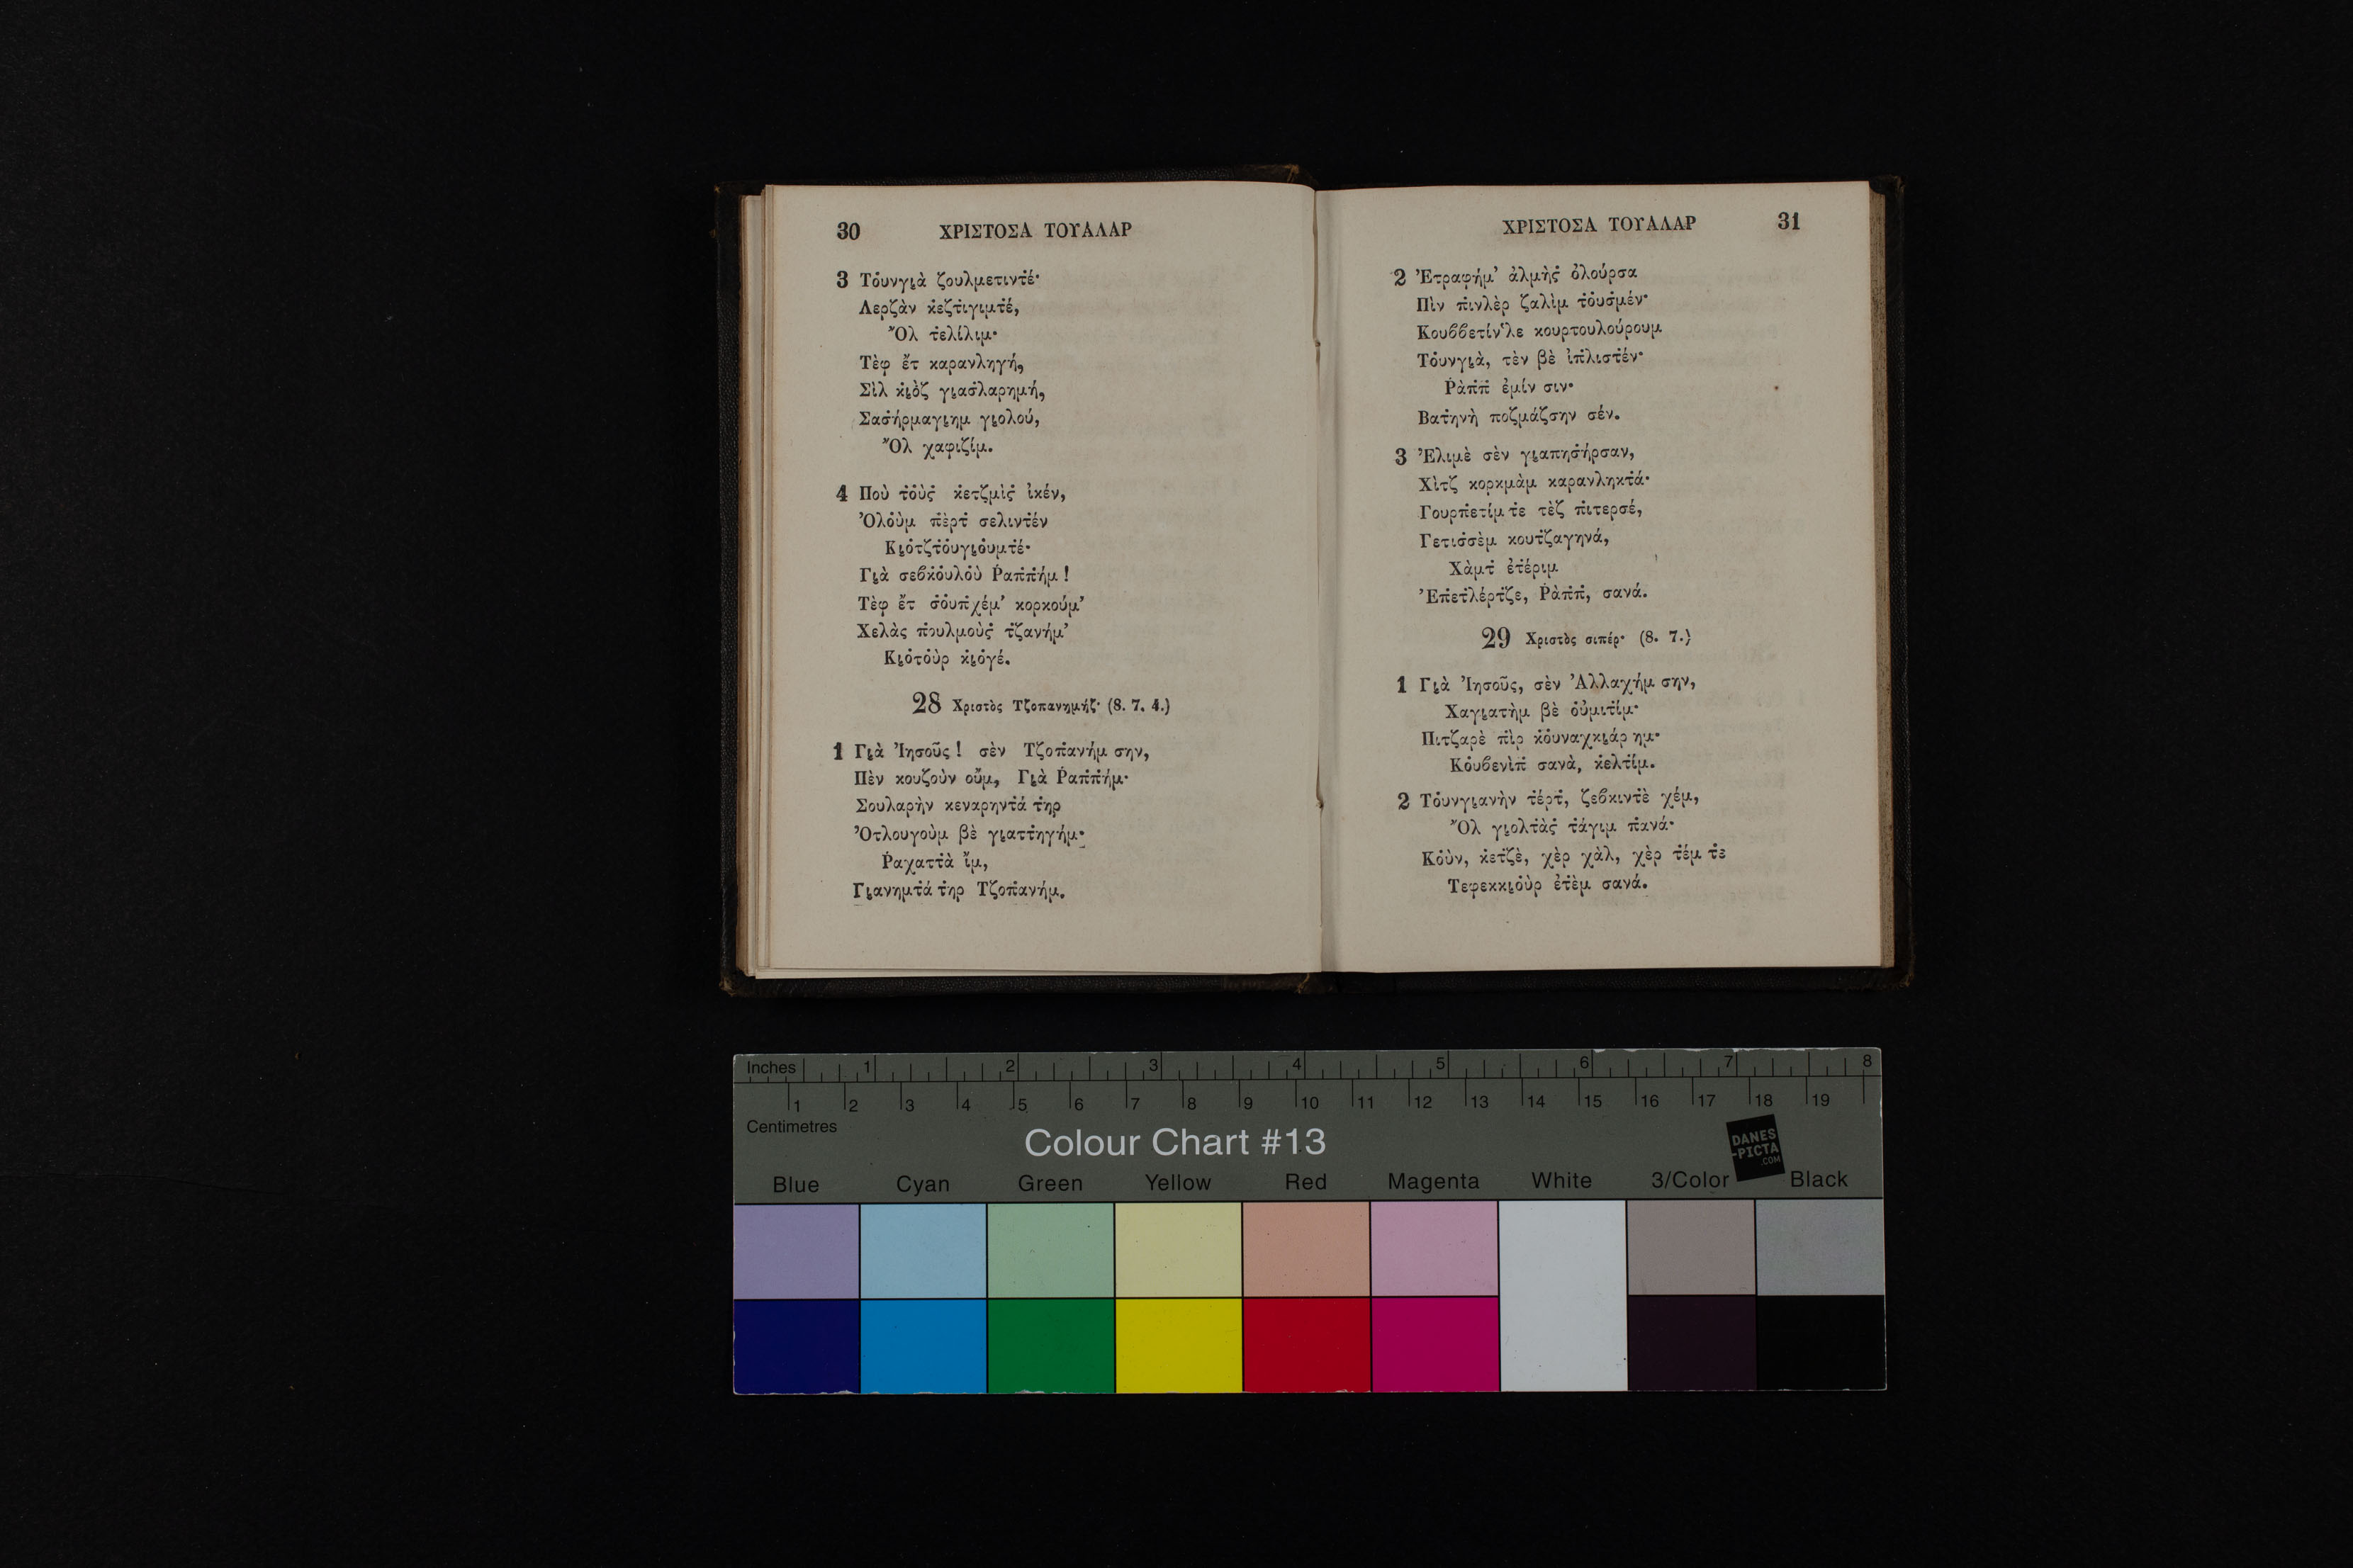 30 ΧΡΙΣΤΟΣΑ ΤΟΥΑΛΑΡ
3 Το̇υνγι̮ὰ ζουλμετιντέ·
Λερζὰν κ̇εζτ̇ιγιμτ̇έ,
Ὂλ τ̇ελίλιμ·
Τὲφ ἔτ καρανληγή,
Σὶλ κ̇ι̮ὸ̇ζ γι̮ασ̇λαρημή,
Σασ̇ήρμαγι̮ημ γι̮ολού,
Ὂλ χαφιζίμ.
4 Ποὺ τ̇ο̇ὺς̇ κ̇ετζμὶς̇ ἰκέν,
Ὀλο̇ὺμ π̇ὲρτ̇ σελιντ̇έν
Κι̮ο̇τζτ̇ο̇υγι̮ο̇υμτ̇έ·
Γι̮ὰ σεβκ̇ο̇υλο̇ὺ Ῥαπ̇π̇ήμ !
Τὲφ ἔτ σ̇ο̇υπ̇χέμ’ κορκούμ’
Χελὰς π̇ουλμοὺς̇ τζ̇ανήμ’
Κι̮ο̇τ̇ο̇ὺρ κ̇ι̮ο̇γέ.
28 Χριστὸς Τζοπανημήζ· (8. 7. 4.)
1 Γι̮ὰ Ἰησοῦς ! σὲν Τζοπ̇ανήμ σην,
Πὲν κουζοὺν οὔμ, Γι̮ὰ Ῥαπ̇π̇ήμ·
Σουλαρὴν κεναρηντ̇ά τ̇ηρ
Ὀτλουγοὺμ βὲ γι̮αττ̇ηγήμ·
Ῥαχαττ̇ὰ ἴμ,
Γι̮ανημτ̇ά τ̇ηρ Τζοπ̇ανήμ.
ΧΡΙΣΤΟΣΑ ΤΟΥΑΛΑΡ 31
2 Ἐτραφήμ’ ἀλμὴς̇ ὀλούρσα
Πὶν π̇ινλὲρ ζαλὶμ τ̇ο̇υσ̇μέν·
Κουββετίν’λε κουρτουλούρουμ
Το̇υνγι̮ὰ, τὲν βὲ ἰπ̇λιστ̇έν·
Ῥὰπ̇π̇ ἐμίν σιν·
Βατ̇ηνὴ ποζμάζσην σέν.
3 Ἐλιμὲ σὲν γι̮απησ̇ήρσαν,
Χὶτζ κορκμὰμ καρανληκτ̇ά·
Γουρπ̇ετίμ τ̇ε τὲζ π̇ιτερσέ,
Γετισ̇σὲμ κουτζ̇αγηνά,
Χὰμτ̇ ἐτ̇έριμ
Ἐπ̇ετ̇λέρτζ̇ε, Ῥὰπ̇π̇, σανά.
29 Χριστὸς σιπέρ· (8. 7.)
1 Γι̮ὰ Ἰησοῦς, σὲν Ἀλλαχήμ σην,
Χαγι̮ατὴμ βὲ ο̇ὐμιτ̇ίμ·
Πιτζ̇αρὲ π̇ὶρ κ̇ο̇υναχκι̮άρ ημ·
Κο̇υβενὶπ̇ σανὰ, κ̇ελτ̇ίμ.
2 Το̇υνγι̮ανὴν τ̇έρτ̇, ζεβκιντ̇ὲ χέμ,
Ὂλ γι̮ολτ̇ὰς̇ τ̇άγιμ π̇ανά·
Κο̇ὺν, κ̇ετζ̇ὲ, χὲρ χὰλ, χὲρ τ̇έμ τ̇ε
Τεφεκκι̮ο̇ὺρ ἐτ̇ὲμ σανά.
Inches 1 2 3 4 5 6 7 8
1 2 3 4 5 6 7 8 9 10 11 12 13 14 15 16 17 18 19
Centimetres
Colour Chart #13
DANES
-PICTA
.COM
Blue Cyan Green Yellow Red Magenta White 3/Color Black